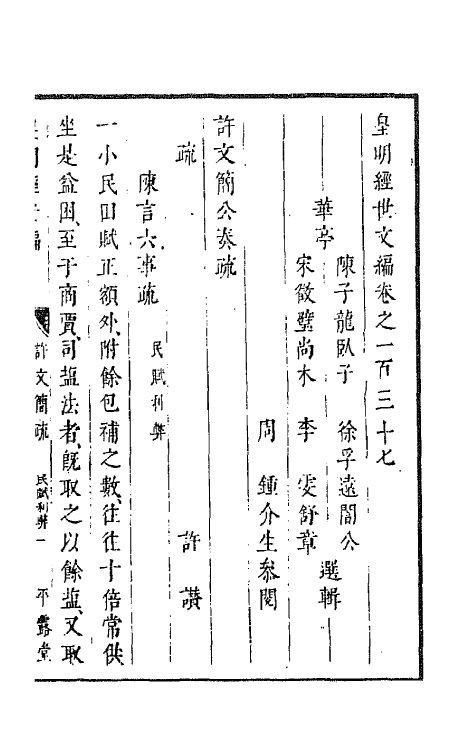 皇明經世文編卷之一百三十七
陳子龍臥子 徐孚遠闇公
華亭 選輯
宋徵璧尚木 李雯舒章
周鍾介生叅閱
許文簡公奏疏
疏 許讚
陳言六事疏 民賦利弊
一小民田賦正額外、附餘包補之數、徃徃十倍常供
坐是益困、至于商賈、司塩法者、旣取之以餘塩、又取
許文簡疏 民賦利弊 一 平露堂